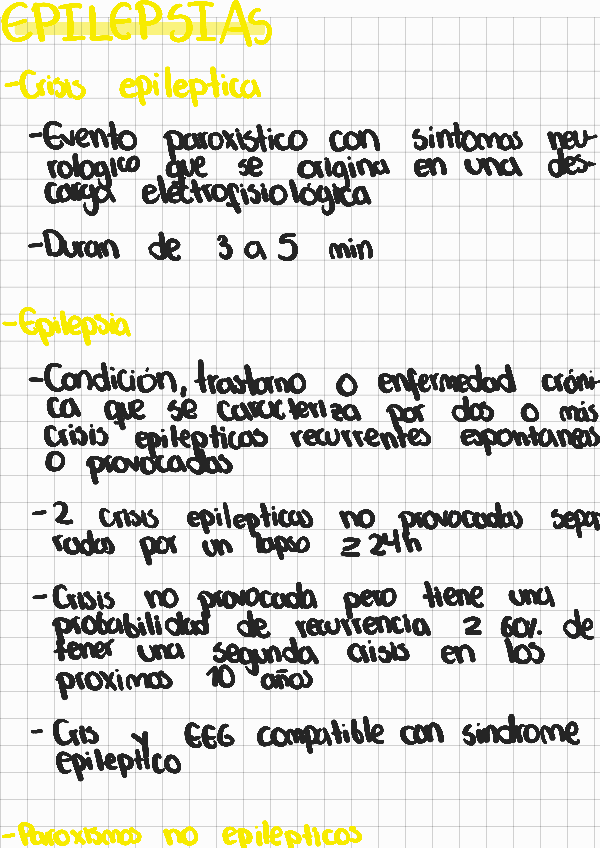 EPILEPSIAS
-Crisis epileptica
-Evento paroxistico con sintomas neu-
rologico que se origina en una des-
carga electrofisiológica
-Duran de 3 a 5 min
-Epilepsia
-Condición, trastorno o enfermedad cróni-
ca que se caracteriza por dos o más
crisis epilepticas recurrentes espontaneas
o provocadas
-2 crisis epilepticas no provocadas sepa
radas por un lapso ≥ 24h
-Crisis no provocada pero tiene una
probabilidad de recurrencia ≥ 60% de
tener una segunda crisis en los
proximos 10 años
-Cris y EEG compatible con sindrome
epileptico
-Paroxismos no epilepticos